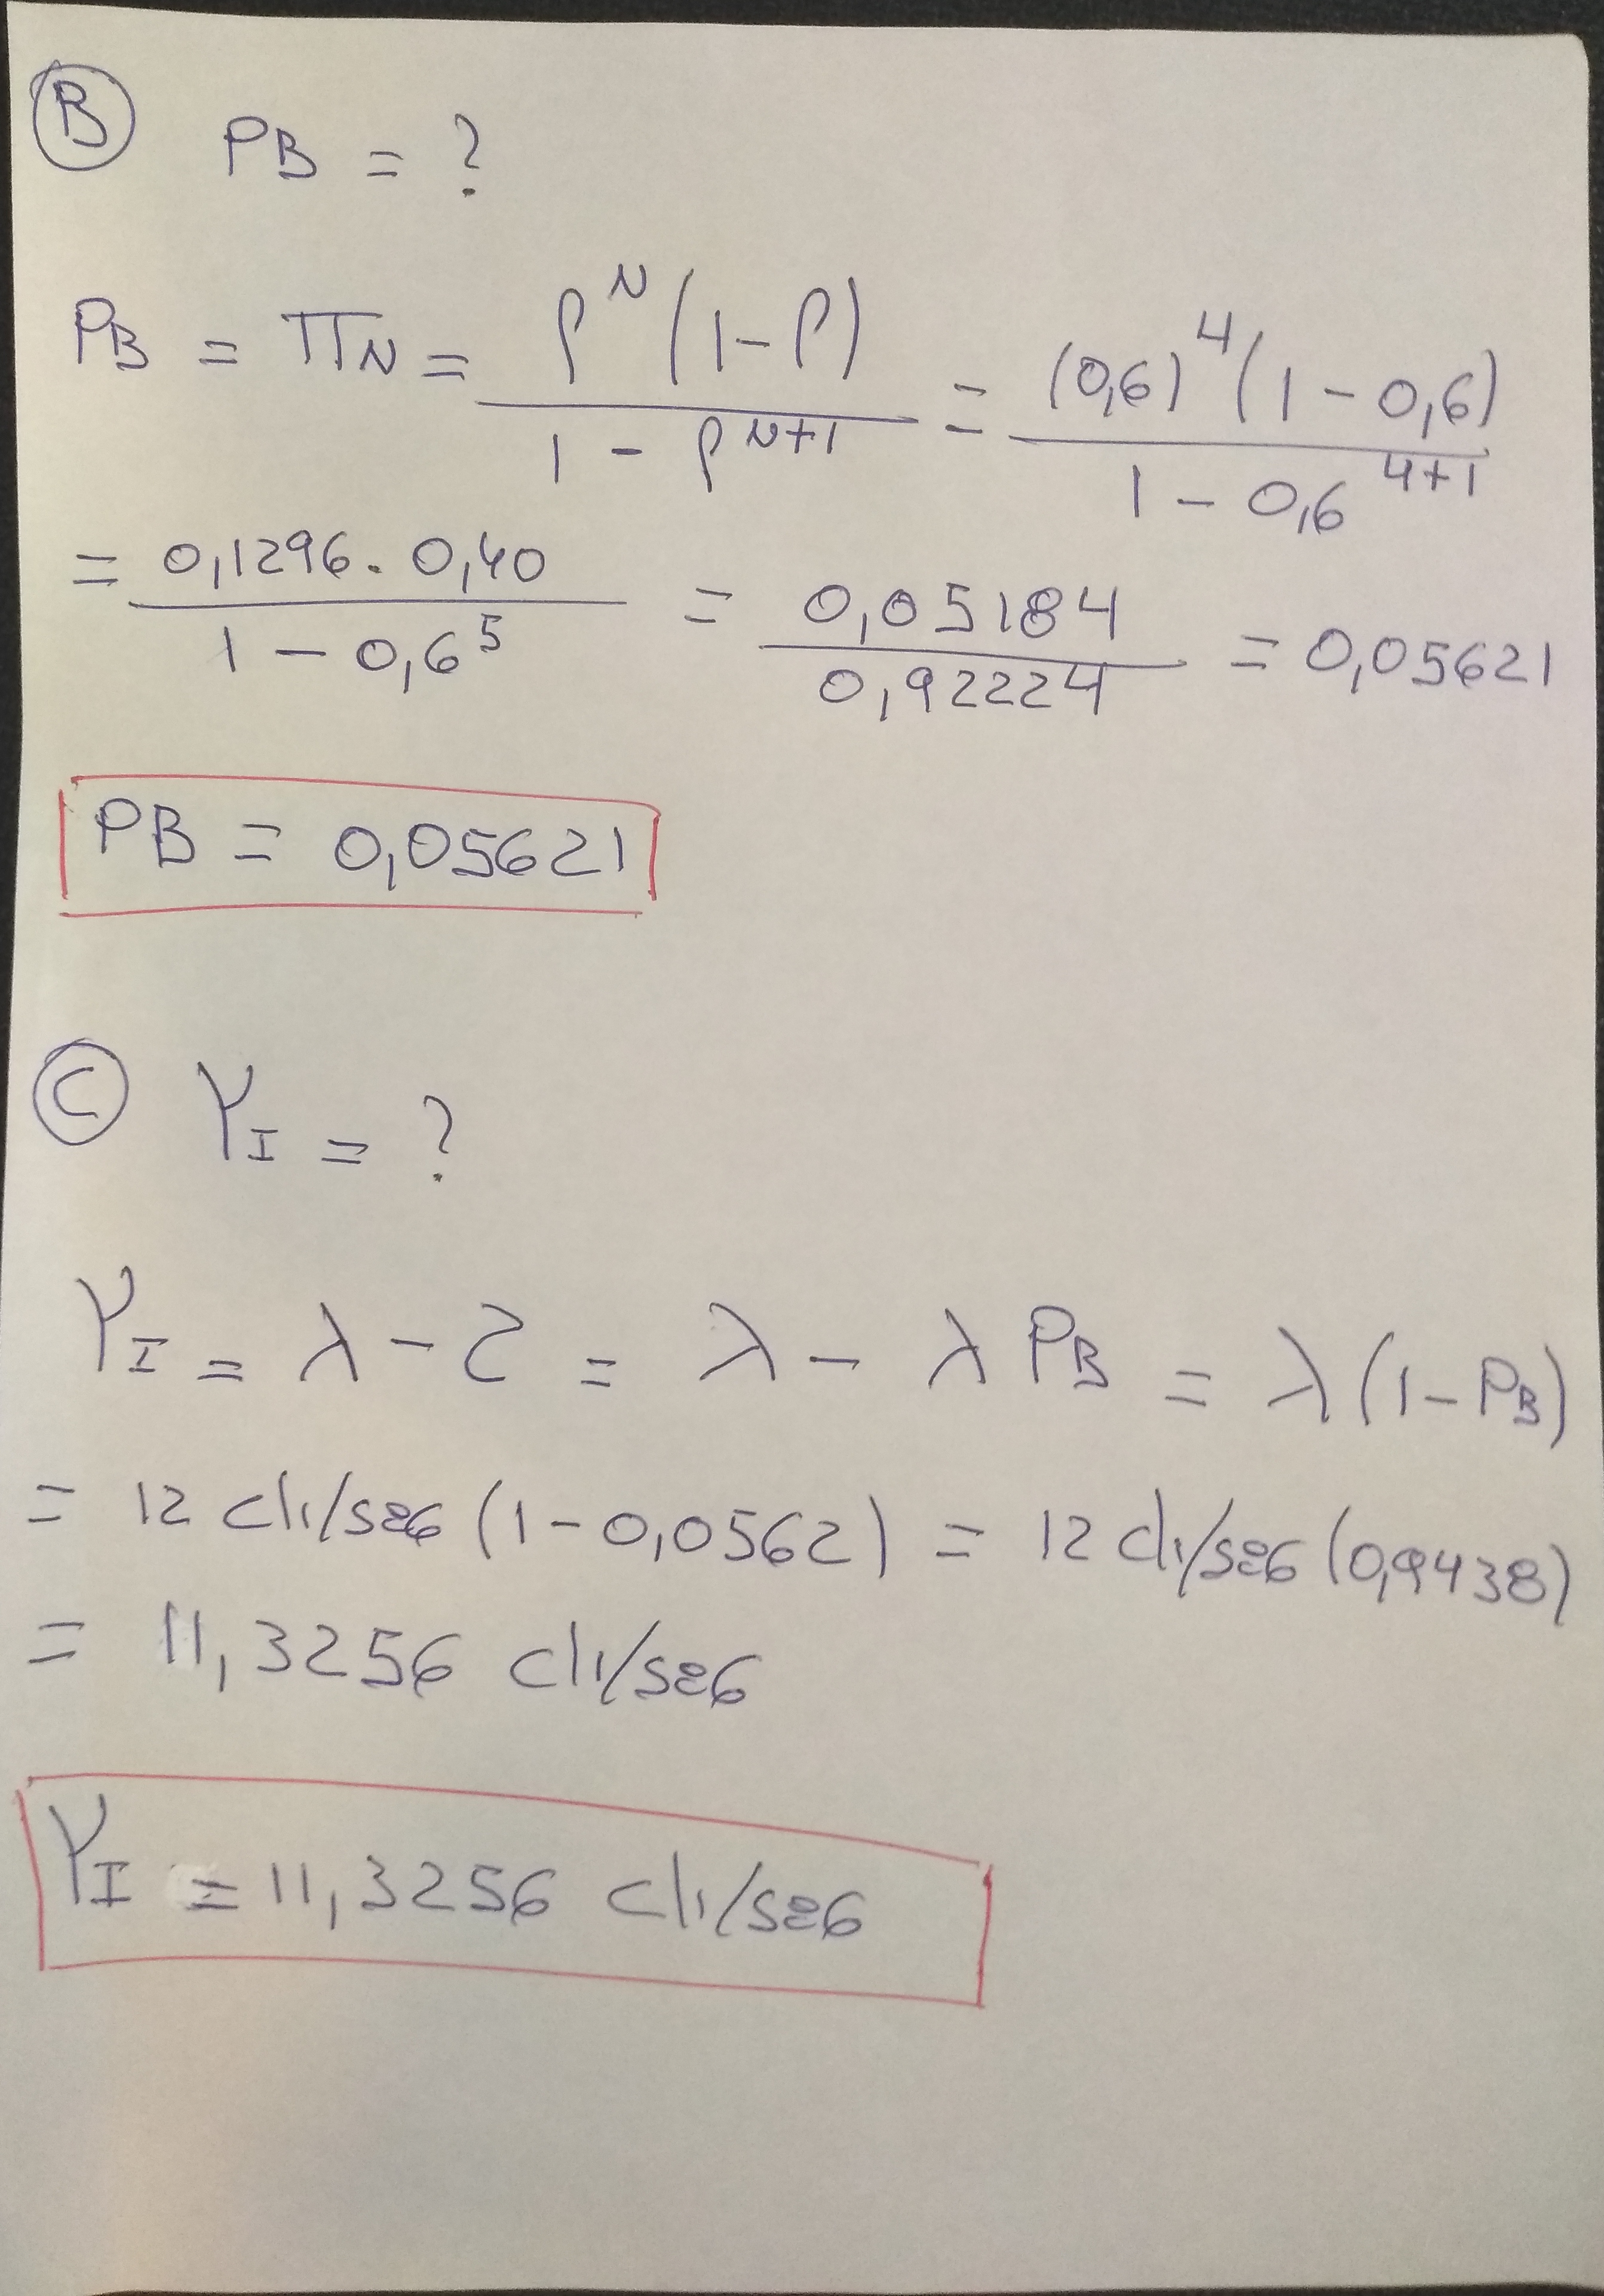 B PB = ?
PB = πN = ρ^N (1-ρ) / 1 - ρ^N+1 = (0,6)^4 (1 - 0,6) / 1 - 0,6^4+1
= 0,1296 . 0,40 / 1 - 0,6^5 = 0,05184 / 0,92224 = 0,05621
PB = 0,05621
C γI = ?
γI = λ - 2 = λ - λ PB = λ (1 - PB)
= 12 cli/seg (1 - 0,0562) = 12 cli/seg (0,9438)
= 11,3256 cli/seg
γI = 11,3256 cli/seg